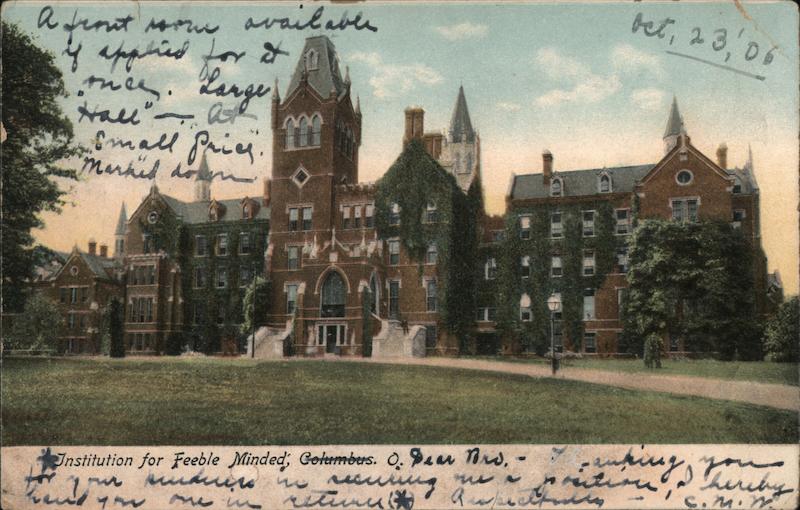 A front room available
if applied for at
"once." Large
Hall" — At
Small Price"
Marked down
Oct, 23,'06
★Institution for Feeble Minded, Columbus. O. Dear Bro, - Thanking you
for your kindness in securing me a position, I hereby
hand you one in return★ Respectfully — C. M. W.